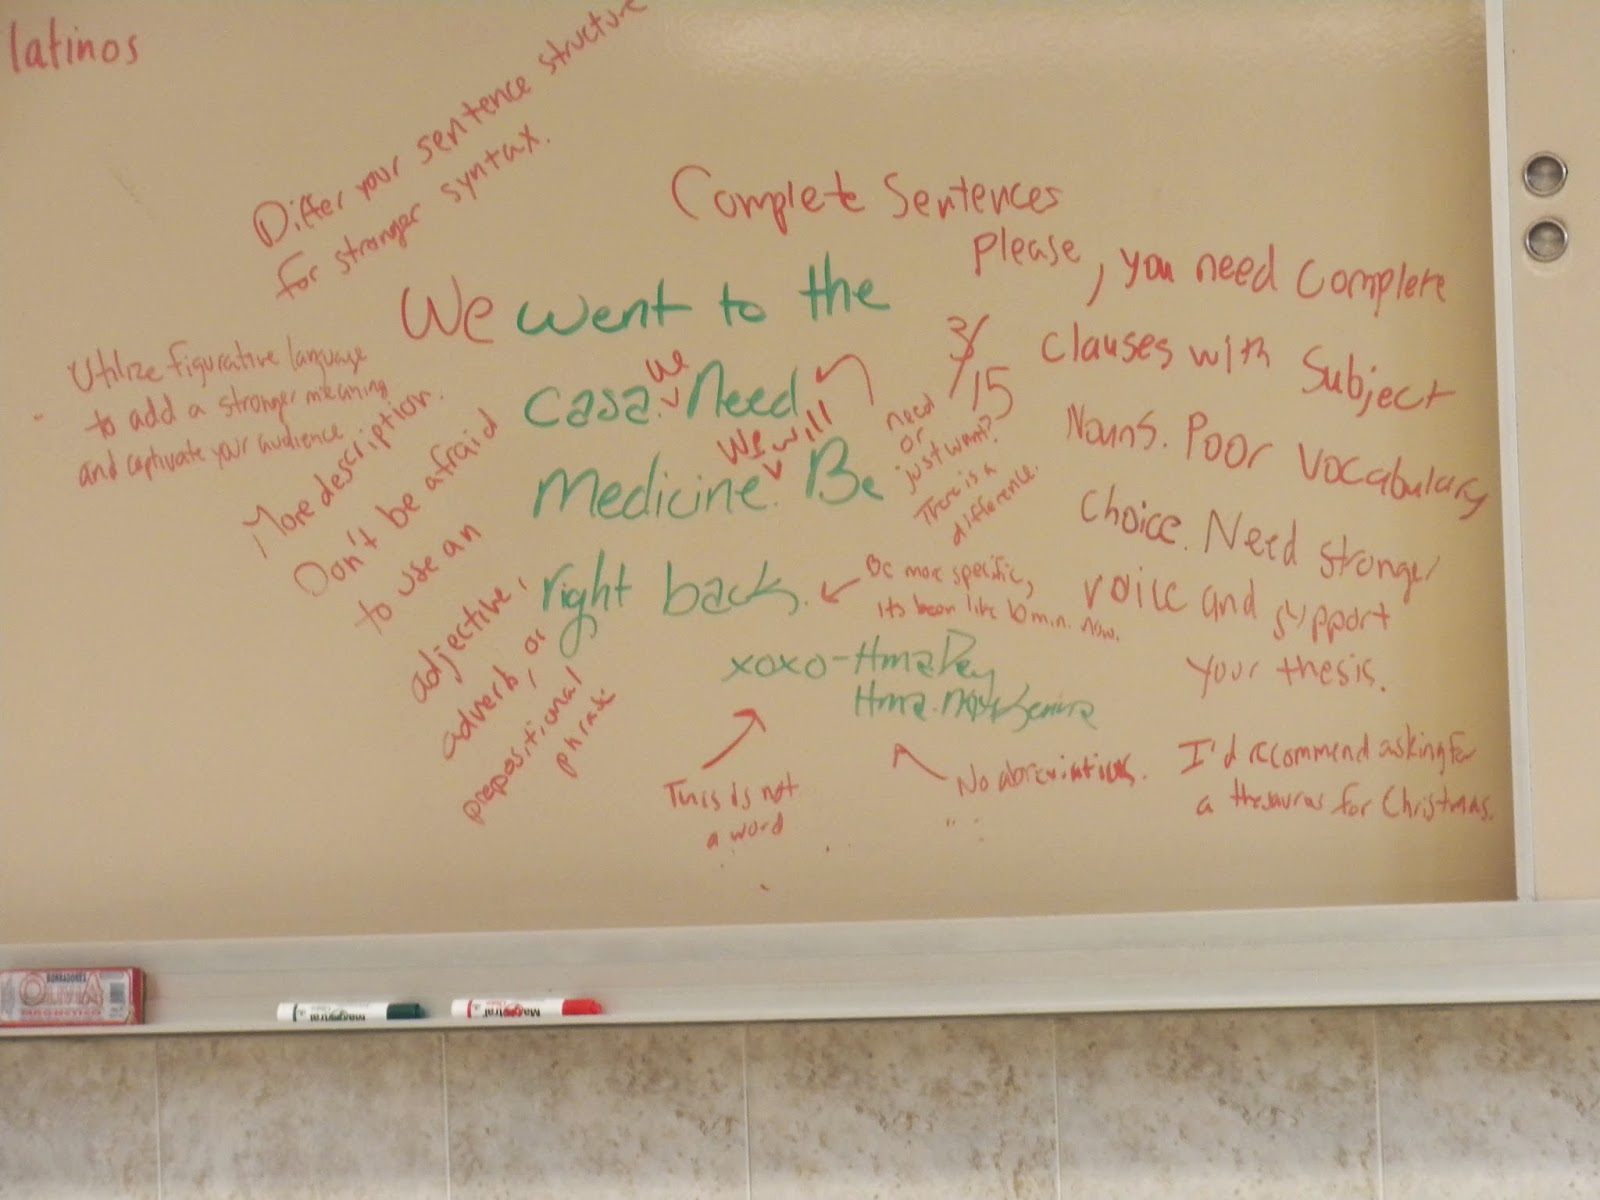 latinos
Differ your sentence structure
for stronger syntax.
Complete Sentences
please, you need complete
clauses with Subject
Nouns. Poor vocabulary
choice. Need stronger
voice and support
your thesis.
I'd recommend asking for
a thesaurus for Christmas.
We went to the
casa. we Need
Medicine. We will Be
right back.
xoxo-Hma Dey
Hma.
3/15
need
or
just want?
There is a
difference.
Be more specific,
its been like 10 min. now.
Utilize figurative language
to add a stronger meaning
and captivate your audience
More description.
Don't be afraid
to use an
adjective,
adverb, or
prepositional
phrase
This is not
a word
No abreviations.
BORRADORES
OLIVIA
MAGNETICO
Magistral
Magistral